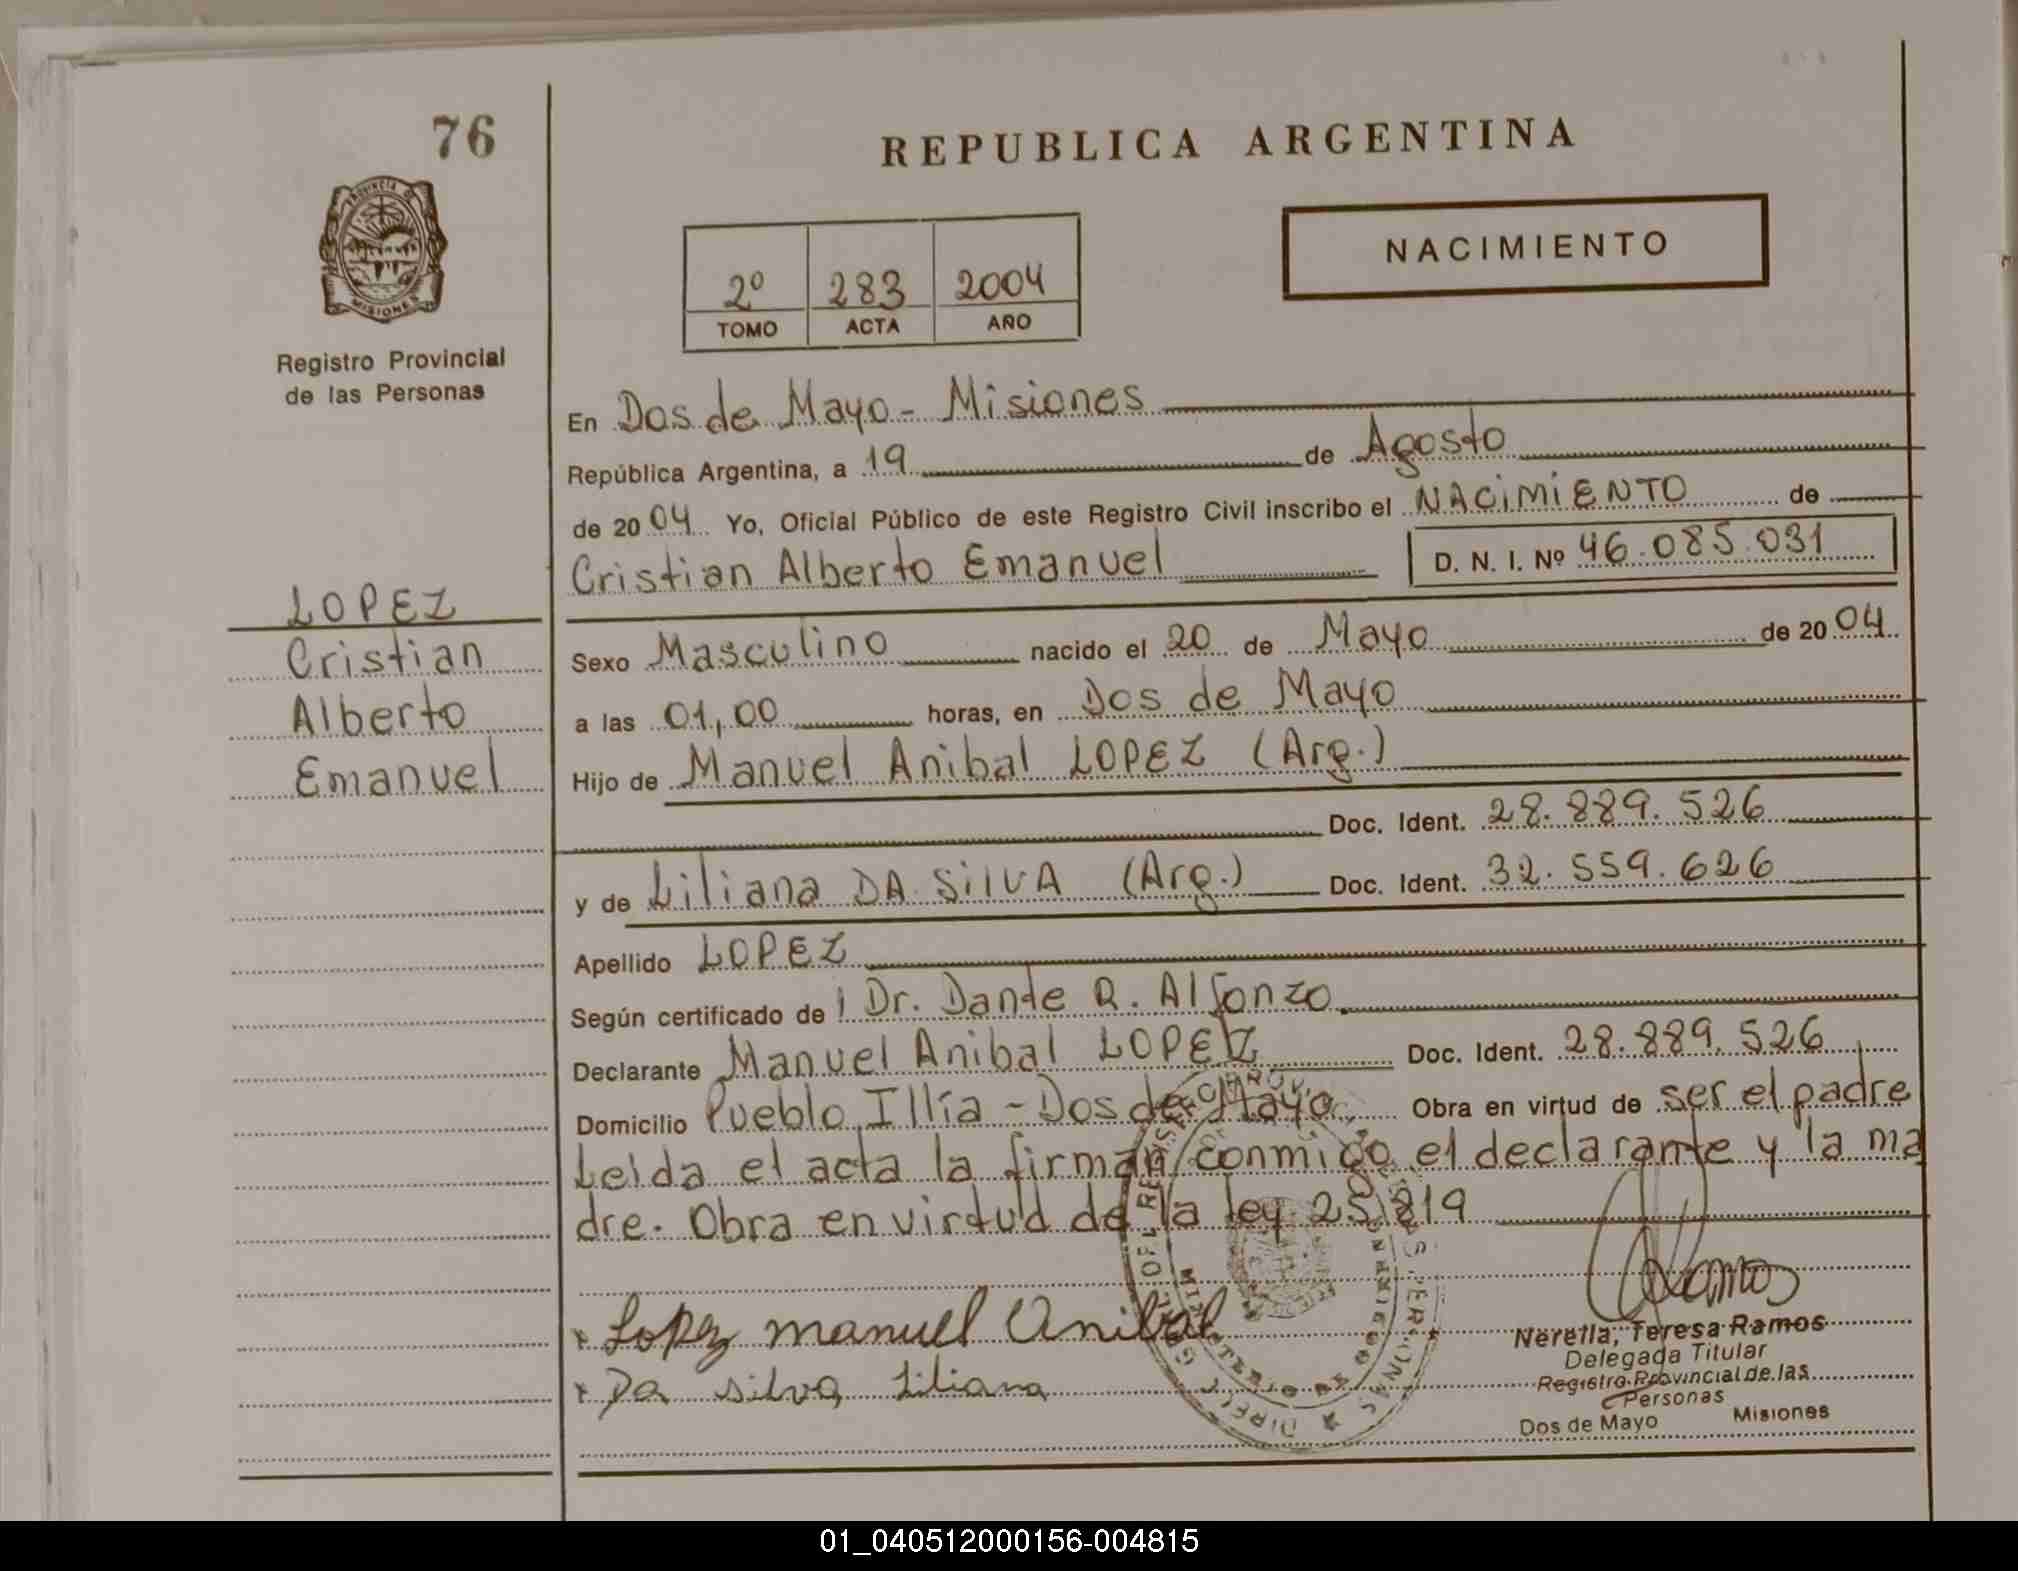 76
REPUBLICA ARGENTINA
PROVINCIA DE
MISIONES
NACIMIENTO
2º 283 2004
TOMO ACTA AÑO
Registro Provincial
de las Personas
LOPEZ
Cristian
Alberto
Emanuel
En Dos de Mayo - Misiones
República Argentina, a 19 de Agosto
de 2004 Yo, Oficial Público de este Registro Civil inscribo el NACIMIENTO de
Cristian Alberto Emanuel D. N. I. Nº 46.085.031
Sexo Masculino nacido el 20 de Mayo de 2004
a las 01,00 horas, en Dos de Mayo
Hijo de Manuel Anibal LOPEZ (Arg.)
Doc. Ident. 28.889.526
y de Liliana DA SILVA (Arg.) Doc. Ident. 32.559.626
Apellido LOPEZ
Según certificado de l Dr. Dante R. Alfonzo
Declarante Manuel Anibal LOPEZ Doc. Ident. 28.889.526
Domicilio Pueblo Illía - Dos de Mayo Obra en virtud de ser el padre
Leida el acta la firman conmigo el declarante y la ma
dre. Obra en virtud de la ley 25.819
x Lopez manuel Anibal
x Da silva Liliana
Ramos
Nerella, Teresa Ramos
Delegada Titular
Registro Provincial de las
Personas
Dos de Mayo Misiones
01_040512000156-004815